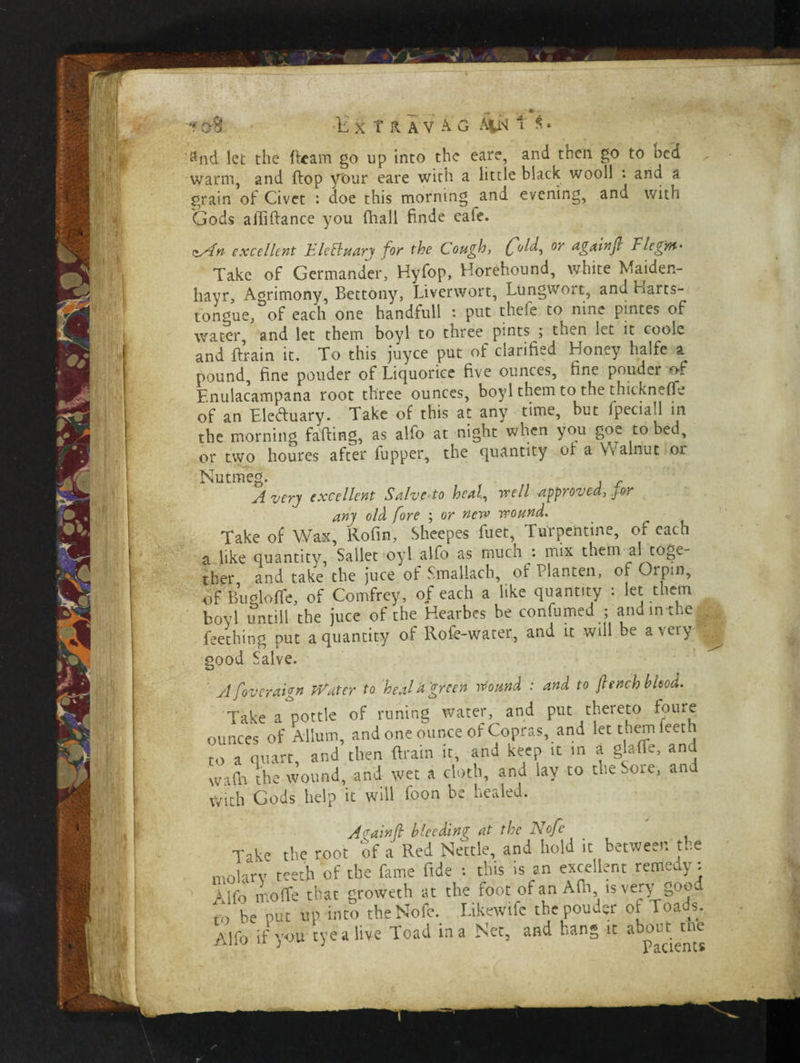 108 EXTRAVAGANTS.
and let the steam go up into the eare, and then go to bed
warm, and stop your eare with a little black wooll : and a
grain of Civet : doe this morning and evening, and with
Gods assistance you shall finde ease.
An excellent Electuary for the Cough, Cold, or against Flegm.
Take of Germander, Hysop, Horehound, white Maiden-
hayr, Agrimony, Bettony, Liverwort, Lungwort, and Harts-
tongue, of each one handfull : put these to nine pintes of
water, and let them boyl to three pints ; then let it coole
and strain it. To this juyce put of clarified Honey halfe a
pound, fine pouder of Liquorice five ounces, fine pouder of
Enulacampana root three ounces, boyl them to the thicknesse
of an Electuary. Take of this at any time, but speciall in
the morning fasting, as also at night when you goe to bed,
or two houres after supper, the quantity of a Walnut or
Nutmeg.
A very excellent Salve to heal, well approved, for
any old sore ; or new wound.
Take of Wax, Rosin, Sheepes suet, Turpentine, of each
a like quantity, Sallet oyl also as much : mix them al toge-
ther, and take the juce of Smallach, of Planten, of Orpin,
of Buglosse, of Comfrey, of each a like quantity : let them
boyl untill the juce of the Hearbes be consumed ; and in the
seething put a quantity of Rose-water, and it will be a very
good Salve.
A soveraign Water to heal a green wound : and to stench blood.
Take a pottle of runing water, and put thereto foure
ounces of Allum, and one ounce of Copras, and let them seeth
to a quart, and then strain it, and keep it in a glasse, and
wash the wound, and wet a cloth, and lay to the Sore, and
with Gods help it will soon be healed.
Against bleeding at the Nose
Take the root of a Red Nettle, and hold it between the
molary teeth of the same side : this is an excellent remedy :
Also mosse that groweth at the foot of an Ash, is very good
to be put up into the Nose. Likewise the pouder of Toads.
Also if you tye a live Toad in a Net, and hang it about the
Pacients